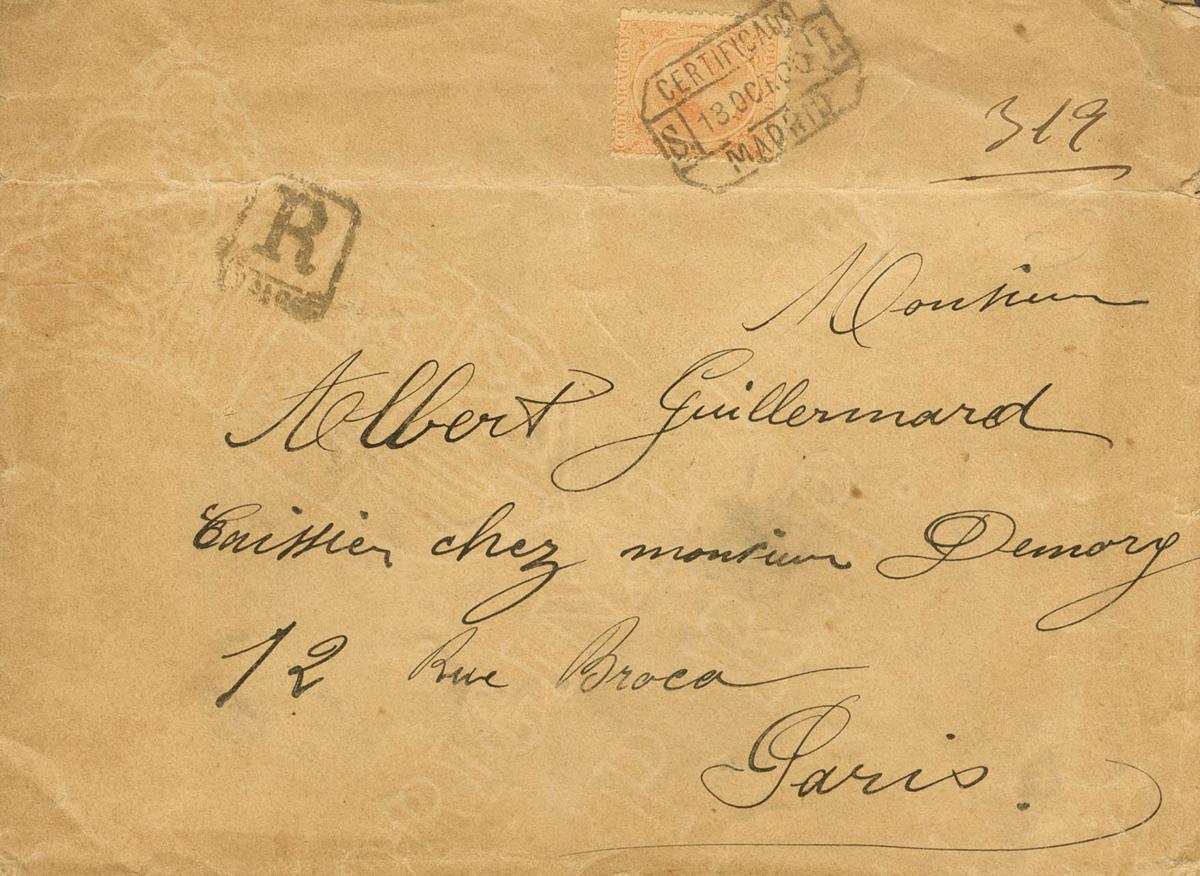 COMUNICACIONES
CERTIFICADO
13.OCT.
MADRID
319
R
Monsieur
Albert Guillermard
Caissier chez monsieur Demory
12 Rue Broca
Paris.